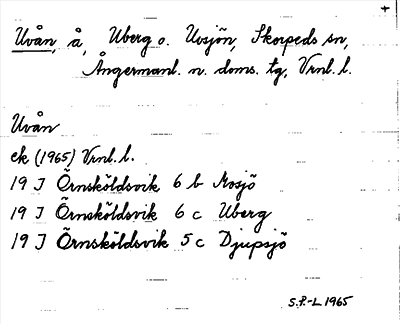 Uvån, å, Uberg o. Uvsjön, Skorpeds sn,
Ångermanl. n. doms. tg, Vrnl. l.
Uvån
ek (1965) Vrnl. l.
19 J Örnsköldsvik 6 b Mosjö
19 J Örnsköldsvik 6 c Uberg
19 J Örnsköldsvik 5 c Djupsjö
S.P.-L 1965